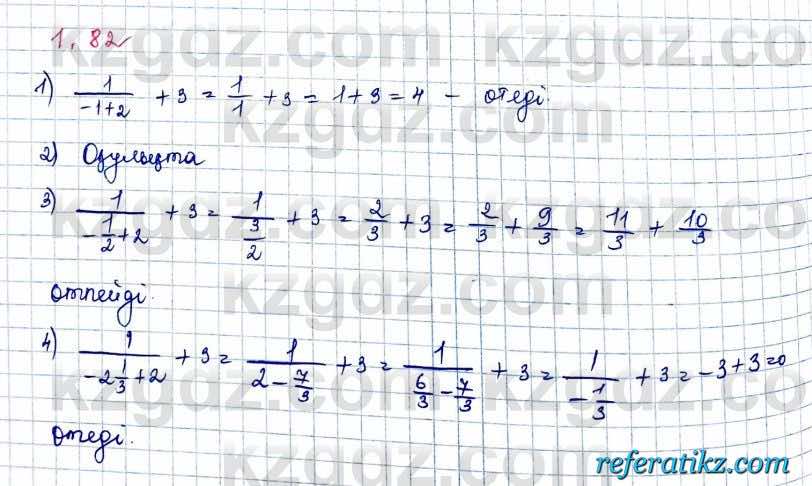 1.82
1) 1/(-1+2) + 3 = 1/1 + 3 = 1+3 = 4 – өтеді.
2) Оқулықта
3) 1/(-1/2+2) + 3 = 1/(3/2) + 3 = 2/3 + 3 = 2/3 + 9/3 = 11/3 + 10/3
өтпейді.
4) 1/(-2 1/3+2) + 3 = 1/(2 - 7/3) + 3 = 1/(6/3 - 7/3) + 3 = 1/(-1/3) + 3 = -3+3=0
өтеді.
kzgdz.com
referatikz.com